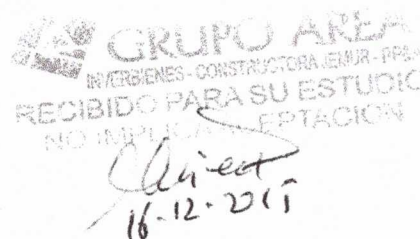 GRUPO AREA
INVERBIENES - CONSTRUCTORA JEMUR - PPA
RECIBIDO PARA SU ESTUDIO
NO IMPLICA EPTACION
16-12-2015